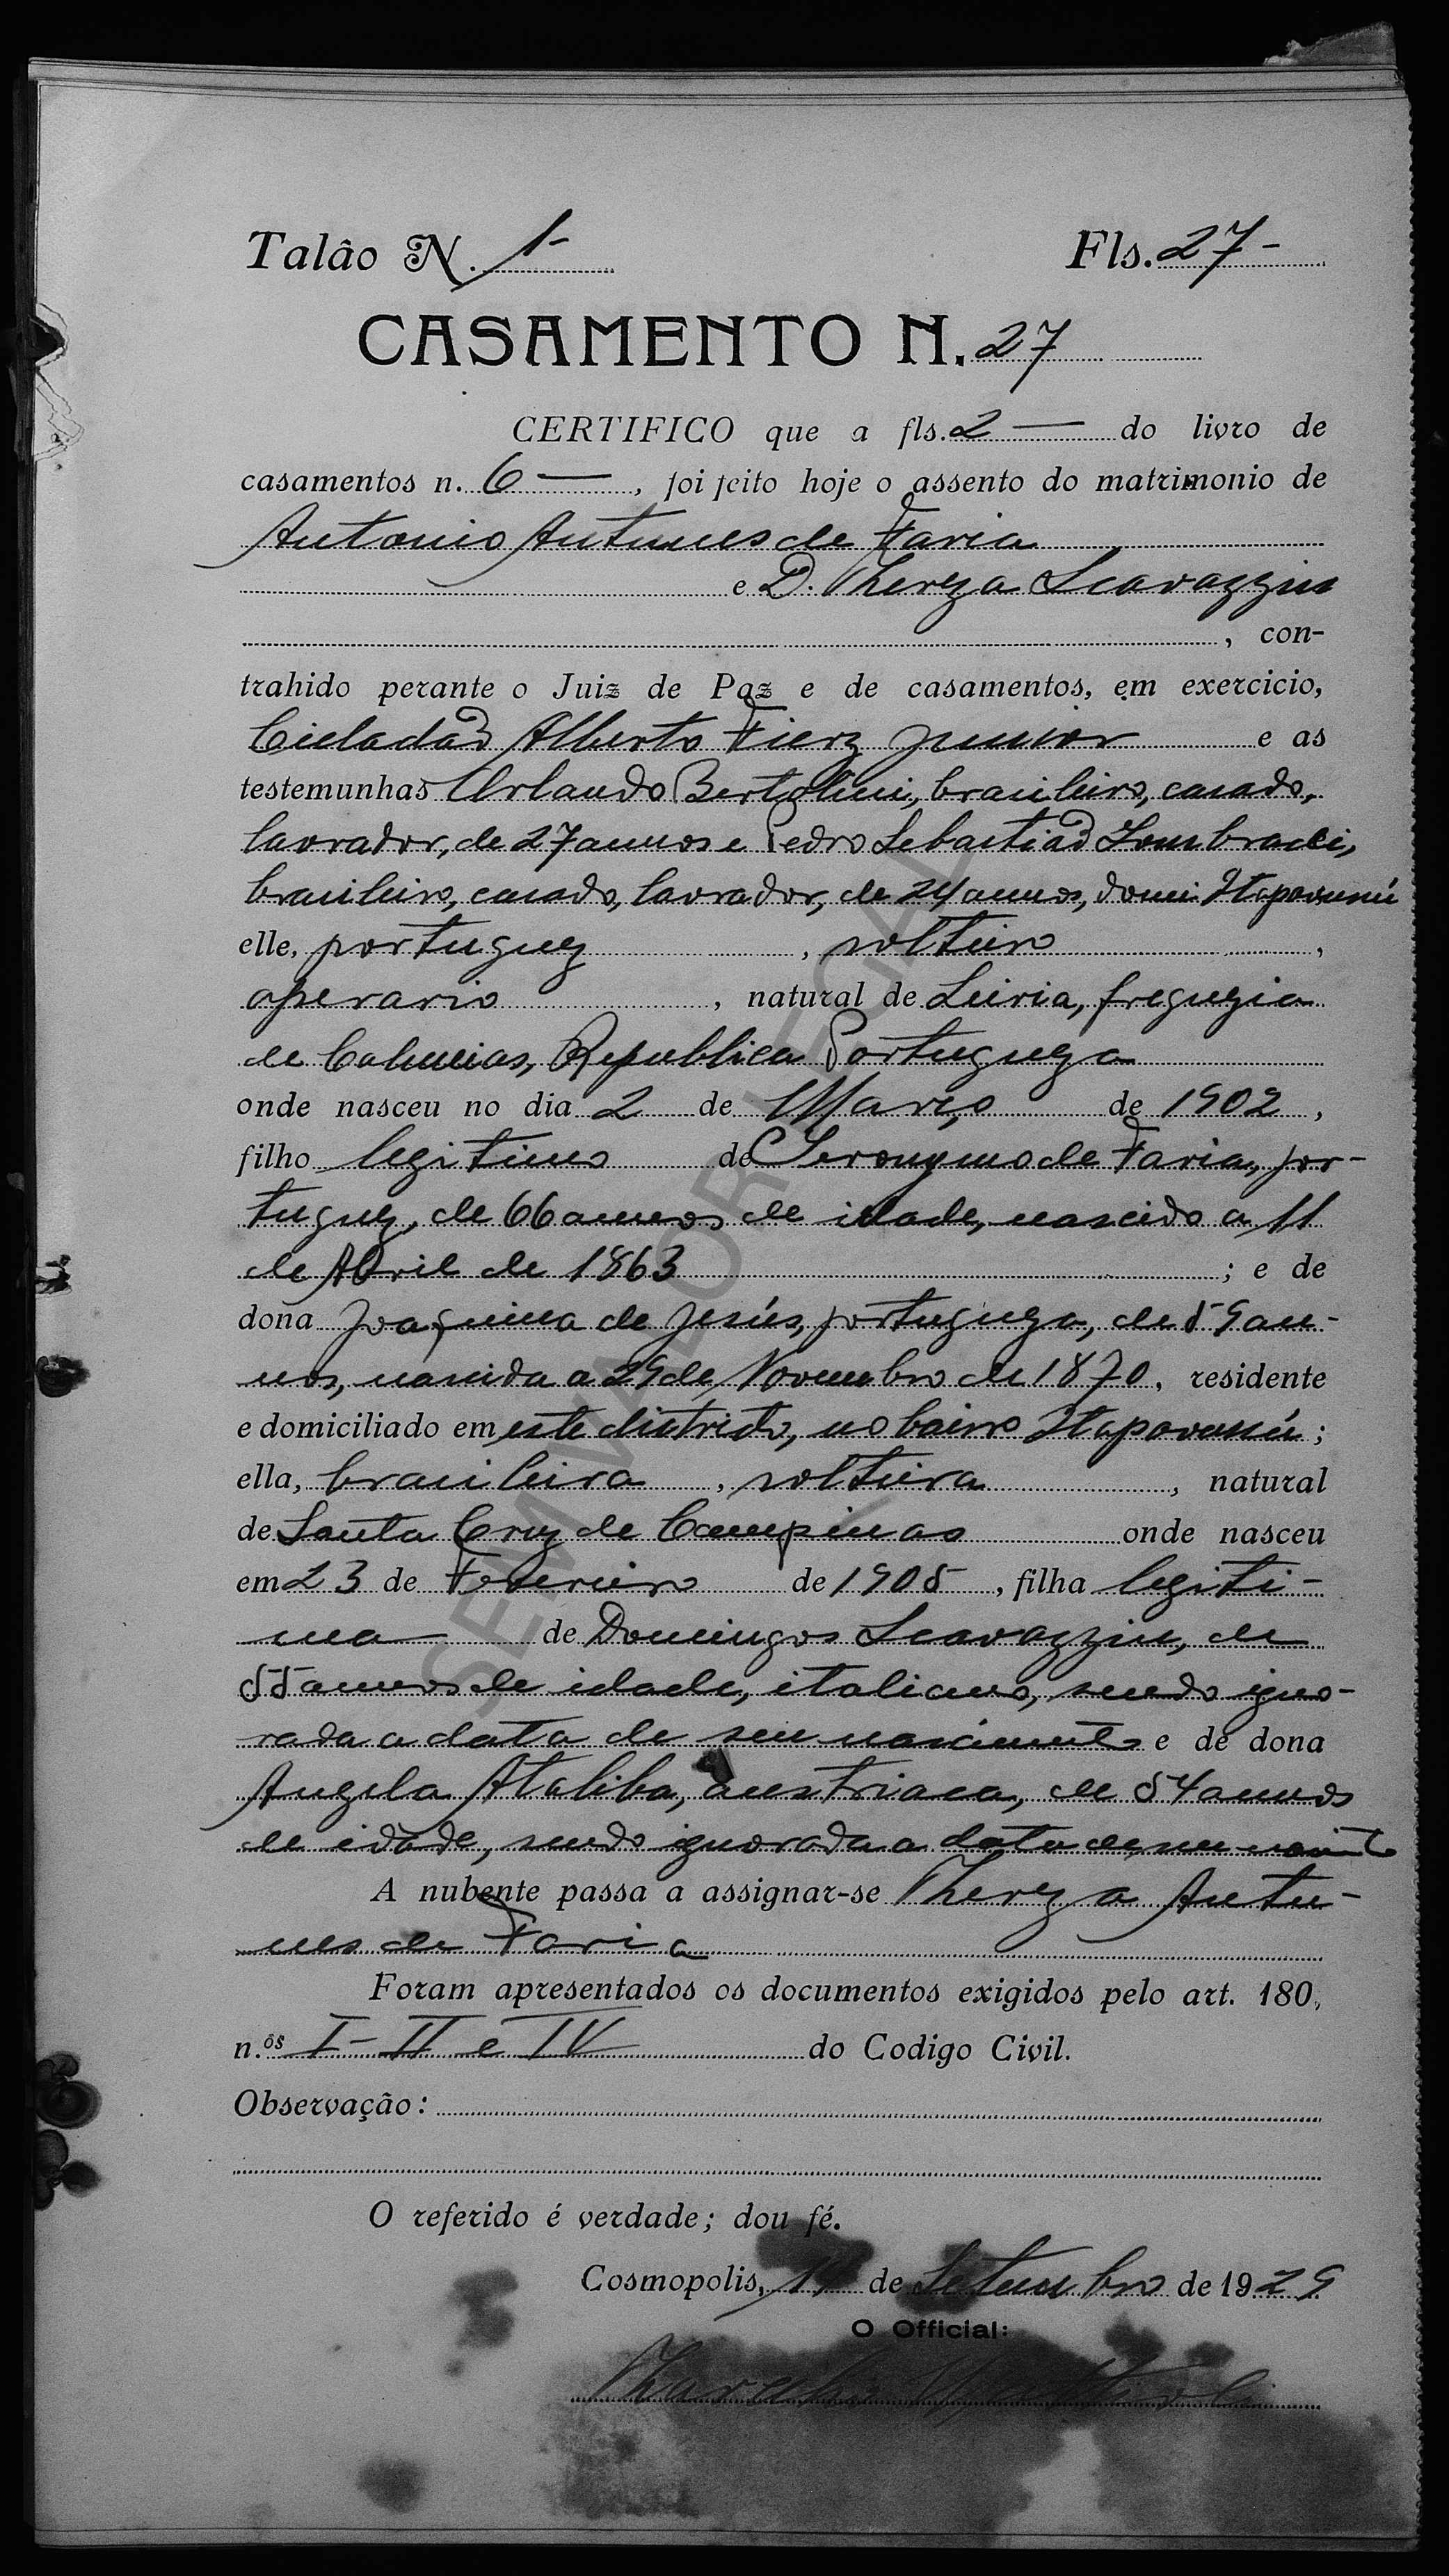 Talão N. 1-
Fls. 27-
CASAMENTO N. 27
CERTIFICO que a fls. 2 — do livro de
casamentos n. 6 —, foi feito hoje o assento do matrimonio de
Antonio Antunes de Faria
e D. Thereza Scavazzin
, con-
trahido perante o Juiz de Paz e de casamentos, em exercicio,
Cidadão Alberto Fierz Junior e as
testemunhas Orlando Bertolini, brasileiro, casado,
lavrador, de 27 annos e Pedro Sebastião
brasileiro, casado, lavrador, de 24 annos,
elle, portuguez, solteiro,
operario, natural de Leiria, freguezia
de Republica Portugueza
onde nasceu no dia 2 de Março de 1902,
filho legitimo de Jeronymo de Faria, por-
tuguez, de 66 annos de idade, nascido a 11
de Abril de 1863 ; e de
dona Joaquina de Jesús, portugueza, de 59 an-
nos, nascida a 29 de Novembro de 1870, residente
e domiciliado em este districto, no bairro ;
ella, brasileira, solteira, natural
de Santa Cruz de Campinas onde nasceu
em 23 de Fevereiro de 1905, filha legiti-
ma de Domingos Scavazzin, de
55 annos de idade, italiano, sendo igno-
rada a data de seu nascimento e de dona
Angela Ataliba, austriaca, de 54 annos
de idade, sendo ignorada a data de seu
A nubente passa a assignar-se Thereza Antu-
nes de Faria
Foram apresentados os documentos exigidos pelo art. 180,
n.os I - II e IV do Codigo Civil.
Observação:
O referido é verdade; dou fé.
Cosmopolis, 14 de Setembro de 1929
O Official:
SEM VALOR LEGAL